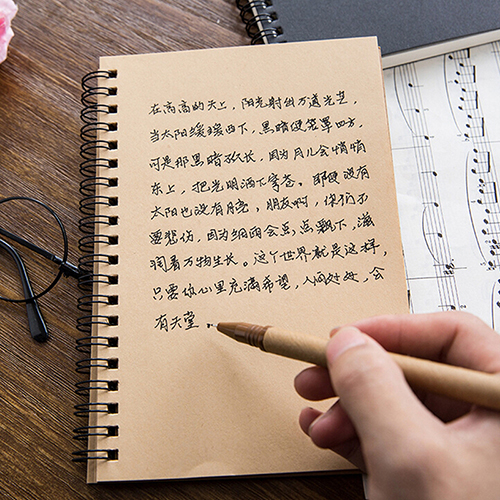 在高高的天上，阳光射到万道光芒，
当太阳缓缓西下，黑暗便笼罩四方，
可是那黑暗不长，因为月儿会悄悄
东上，把光明洒下穹苍。即使没有
太阳也没有月亮，朋友啊，你们不
要悲伤，因为细雨会点点飘下，滋
润着万物生长。这个世界就是这样，
只要你心里充满希望，人间处处，会
有天堂..